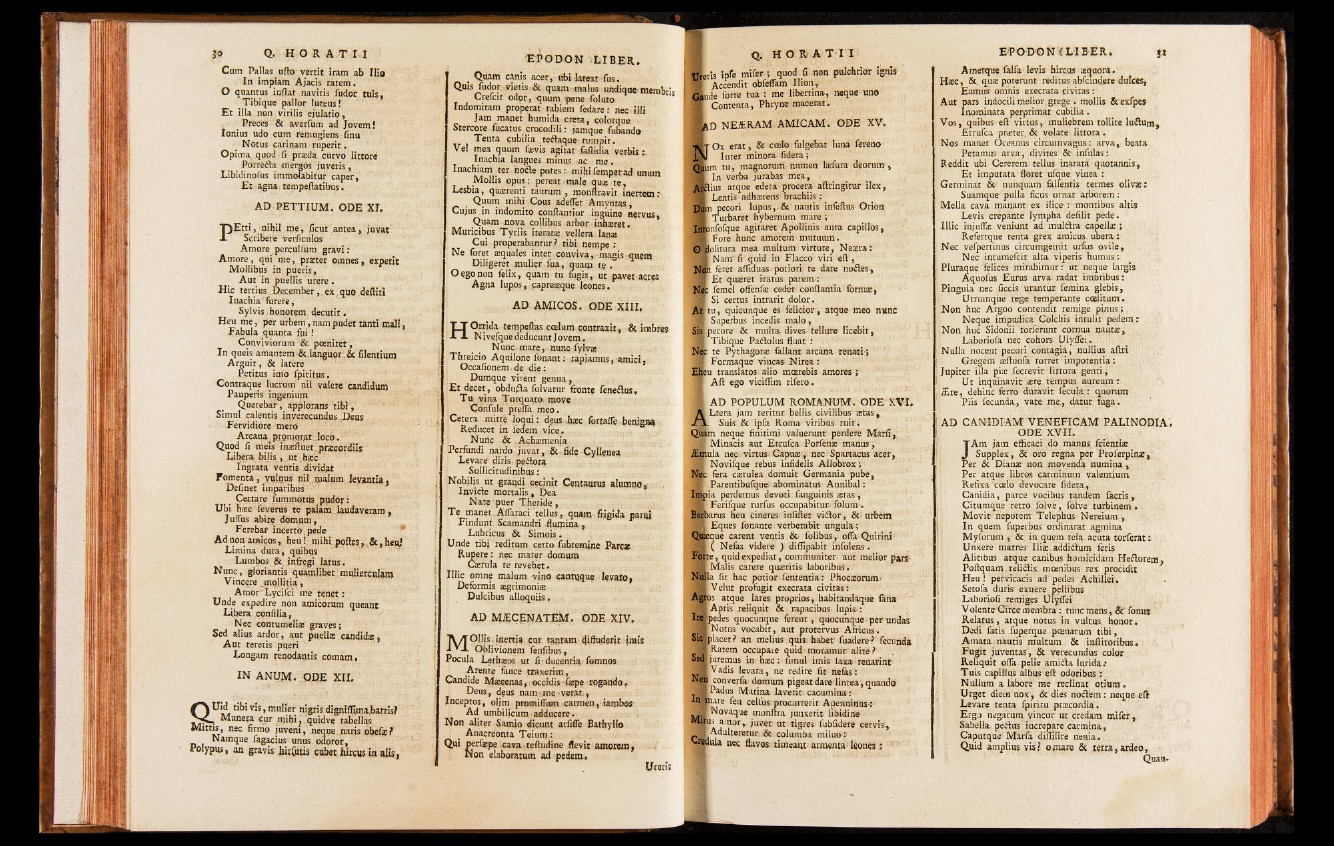 30 Q. HORATII
Cum Pallas usto vertit iram ab Ilio
In impiam Ajacis ratem.
O quantus instat navitis sudor tuis,
Tibique pallor luteus!
Et illa non virilis ejulatio,
Preces & aversum ad Jovem!
Ionius udo cum remugiens sinu
Notus carinam ruperit.
Opima quod si præda curvo littore
Porrecta mergos juveris,
Libidinosus immolabitur caper,
Et agna tempestatibus.
AD PETTIUM. ODE XI.
PEtti, nihil me, sicut antea, juvat
Scribere versiculos
Amore perculsum gravi:
Amore, qui me, præter omnes, expetit
Mollibus in pueris,
Aut in puellis urere.
Hic tertius December, ex quo destiti
Inachia furere,
Sylvis honorem decutit.
Heu me, per urbem, nam pudet tanti mali,
Fabula quanta fui!
Conviviorum & pœnitet,
In queis amantem & languor & silentium
Arguit, & latere
Petitus imo spiritus.
Contraque lucrum nil valere candidum
Pauperis ingenium
Querebar, applorans tibi,
Simul calentis inverecundus Deus
Fervidiore mero
Arcana promorat loco.
Quod si meis inæstuet præcordiis
Libera bilis, ut hæc
Ingrata ventis dividat
Fomenta, vulnus nil malum levantia,
Desinet imparibus
Certare summotus pudor:
Ubi hæc severus te palam laudaveram,
Jussus abire domum,
Ferebar incerto pede
Ad non amicos, heu! mihi postes, & , heu!
Limina dura, quibus
Lumbos & infregi latus.
Nunc, gloriantis quamlibet mulierculam
Vincere mollitia,
Amor Lycisci me tenet:
Unde expedire non amicorum queant
Libera consilia,
Nec contumeliæ graves;
Sed alius ardor, aut puellæ candidæ,
Aut teretis pueri
Longam renodantis comam.
IN ANUM. ODE XII.
QUid tibi vis, mulier nigris dignissima barris?
Munera cur mihi, quidve tabellas
Mittis, nec firmo juveni, neque naris obesæ?
Namque sagacius unus odoror,
Polypus, an gravis hirsutis cubet hircus in alis,
EPODON LIBER.
Quam canis acer, ubi lateat sus.
Quis sudor vietis & quam malus undique membris
Crescit odor, quum pene soluto
Indomitam properat rabiem sedare: nec illi
Jam manet humida creta, colorque
Stercore fucatus crocodili: jamque subando
Tenta cubilia tectaque rumpit.
Vel mea quum sævis agitat fastidia verbis:
Inachia langues minus ac me.
Inachiam ter nocte potes: mihi semper ad unum
Mollis opus: pereat male quæ te,
Lesbia, quærenti taurum, monstravit inertem:
Quum mihi Cous adesset Amyntas,
Cujus in indomito constantior inguine nervus,
Quam nova collibus arbor inhæret.
Muricibus Tyriis iteratæ vellera lanæ
Cui properabantur? tibi nempe:
Ne foret æquales inter conviva, magis quem
Diligeret mulier sua, quam te.
O ego non felix, quam tu fugis, ut pavet acres
Agna lupos, capreæque leones.
AD AMICOS. ODE XIII.
HOrrida tempestas cœlum contraxit, & imbres
Nivesque deducunt Jovem.
Nunc mare, nunc sylvæ
Threicio Aquilone sonant: rapiamus, amici,
Occasionem de die:
Dumque virent genua,
Et decet, obducta solvatur fronte senectus.
Tu vina Torquato move
Consule pressa meo.
Cetera mitte loqui: deus hæc fortasse benigna
Reducet in sedem vice.
Nunc & Achæmenia
Perfundi nardo juvat, & fide Cyllenea
Levare diris pectora
Sollicitudinibus:
Nobilis ut grandi cecinit Centaurus alumno,
Invicte mortalis, Dea
Nate puer Theride,
Te manet Assaraci tellus, quam frigida parui
Findunt Scamandri flumina,
Lubricus & Simois.
Unde tibi reditum certo subtemine Parcæ
Rupere: nec mater domum
Cærula te revehet.
Illic omne malum vino cantuque levato,
Deformis ægrimoniæ
Dulcibus alloquiis.
AD MÆCENATEM. ODE XIV.
MOllis inertia cur tantam diffuderit imis
Oblivionem sensibus,
Pocula Lethæos ut si ducentia somnos
Arente fauce traxerim,
Candide Mæcenas, occidis sæpe rogando.
Deus, deus nam me vetat,
Inceptos, olim promissum carmen, iambos
Ad umbilicum adducere.
Non aliter Samio dicunt arsisse Bathyllo
Anacreonta Teium:
Qui persæpe cava testudine flevit amorem,
Non elaboratum ad pedem.
Ureris
Q. HORATII
Ureris ipse miser; quod si non pulchrior ignis
Accendit obsessam Ilion,
Gaude sorte tua: me libertina, neque uno
Contenta, Phryne macerat.
AD NEÆRAM AMICAM. ODE XV.
NOx erat, & cœlo fulgebat luna sereno
Inter minora sidera;
Quum tu, magnorum numen læsura deorum,
In verba jurabas mea,
Arctius atque edera procera astringitur ilex,
Lentis adhærens brachiis:
Dum pecori lupus, & nautis infestus Orion
Turbaret hybernum mare;
Intonsosque agitaret Apollinis aura capillos,
Fore hunc amorem mutuum.
O dolitura mea multum virtute, Neæra:
Nam si quid in Flacco viri est,
Non feret assiduas potiori te dare noctes,
Et quæret iratus parem:
Nec semel offensæ cedet constantia formæ,
Si certus intrarit dolor.
At tu, quicunque es felicior, atque meo nunc
Superbus incedis malo,
Sis pecore & multa dives tellure licebit,
Tibique Pactolus fluat:
Nec te Pythagoræ fallant arcana renati;
Formaque vincas Nirea:
Eheu translatos alio mœrebis amores;
Ast ego vicissim risero.
AD POPULUM ROMANUM. ODE XVI.
ALtera jam teritur bellis civilibus ætas,
Suis & ipsa Roma viribus ruit.
Quam neque finitimi valuerunt perdere Marsi,
Minacis aut Etrusca Porsenæ manus,
Æmula nec virtus Capuæ, nec Spartacus acer,
Novisque rebus infidelis Allobrox;
Nec fera cærulea domuit Germania pube,
Parentibusque abominatus Annibal:
Impia perdemus devoti sanguinis ætas,
Ferisque rursus occupabitur solum.
Barbarus heu cineres insistet victor, & urbem
Eques sonante verberabit ungula;
Quæque carent ventis & solibus, ossa Quirini
( Nefas videre ) dissipabit insolens.
Forte, quid expediat, communiter aut melior pars
Malis carere quæritis laboribus.
Nulla sit hac potior sententia: Phocæorum
Velut profugit execrata civitas:
Agros atque lares proprios, habitandaque fana
Apris reliquit & rapacibus lupis:
Ire pedes quocunque ferent, quocunque per undas
Notus vocabit, aut protervus Africus.
Sic placet? an melius quis habet suadere? secunda
Ratem occupare quid moramur alite?
Sed juremus in hæc: simul imis saxa renarint
Vadis levata, ne redire sit nefas:
Neu conversa domum pigeat dare lintea, quando
Padus Matina laverit cacumina:
In mare seu celsus procurrerit Apenninus:
Novaque monstra junxerit libidine
Mirus amor, juvet ut tigres subsidere cervis,
Adulteretur & columba miluo:
Credula nec flavos timeant armenta leones:
EPODON LIBER. 31
Ametque salsa levis hircus æquora.
Hæc, & quæ poterunt reditus abscindere dulces,
Eamus omnis execrata civitas:
Aut pars indocili melior grege. mollis & exspes
Inominata perprimat cubilia.
Vos, quibus est virtus, muliebrem tollite luctum,
Etrusca præter & volate littora.
Nos manet Oceanus circumvagus: arva, beata
Petamus arva, divites & insulas:
Reddit ubi Cererem tellus inarata quotannis,
Et imputata floret usque vinea:
Germinat & nunquam fallentis termes olivæ:
Suamque pulla ficus ornat arborem:
Mella cava manant ex ilice: montibus altis
Levis crepante lympha desilit pede.
Illic injussæ veniunt ad mulctra capellæ;
Refertque tenta grex amicus ubera:
Nec vespertinus circumgemit ursus ovile,
Nec intumescit alta viperis humus:
Pluraque felices mirabimur: ut neque largis
Aquosus Eurus arva radat imbribus:
Pinguia nec siccis urantur semina glebis,
Utrumque rege temperante cœlitum.
Non huc Argoo contendit remige pinus;
Neque impudica Colchis intulit pedem:
Non huc Sidonii torserunt cornua nautæ,
Laboriosa nec cohors Ulyssei.
Nulla nocent pecori contagia, nullius astri
Gregem æstuosa torret impotentia:
Jupiter illa piæ secrevit littora genti,
Ut inquinavit ære tempus aureum:
Ære, dehinc ferro duravit secula: quorum
Piis secunda, vate me, datur fuga.
AD CANIDIAM VENEFICAM PALINODIA.
ODE XVII.
JAm jam efficaci do manus scientiæ
Supplex, & oro regna per Proserpinæ,
Per & Dianæ non movenda numina,
Per atque libros carminum valentium
Refixa cœlo devocare sidera,
Canidia, parce vocibus tandem sacris,
Citumque retro solve, solve turbinem.
Movit nepotem Telephus Nereium,
In quem superbus ordinarat agmina
Mysorum, & in quem tela acuta torserat:
Unxere matres Iliæ addictum feris
Alitibus atque canibus homicidam Hectorem,
Postquam relictis mœnibus rex procidit
Heu! pervicacis ad pedes Achillei.
Setosa duris exuere pellibus
Laboriosi remiges Ulyssei
Volente Circe membra: tunc mens, & sonus
Relatus, atque notus in vultus honor.
Dedi satis superque pœnarum tibi,
Amata nautis multum & institoribus.
Fugit juventas, & verecundus color
Reliquit ossa pelle amicta lurida:
Tuis capillus albus est odoribus:
Nullum a labore me reclinat otium.
Urget diem nox, & dies noctem: neque est
Levare tenta spiritu præcordia.
Ergo negatum vincor ut credam miser,
Sabella pectus increpare carmina,
Caputque Marsa dissilire nenia.
Quid amplius vis? o mare & terra, ardeo,
Quan-